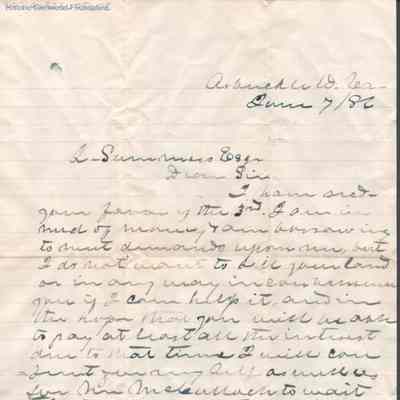 Arbuckle W. Va
June 7/86
L. Summers Esqr
Dear Sir
I have recd
your favor of the 3rd. I am in
need of money, & am borrowing
to meet demands upon me, but
I do not want to sell your land
or in any way inconvenience
you if I can help it, and in
the hope that you will be able
to pay at least all the interest
due to that time I will con
sent for my self as well as
for Mr McCullach to wait